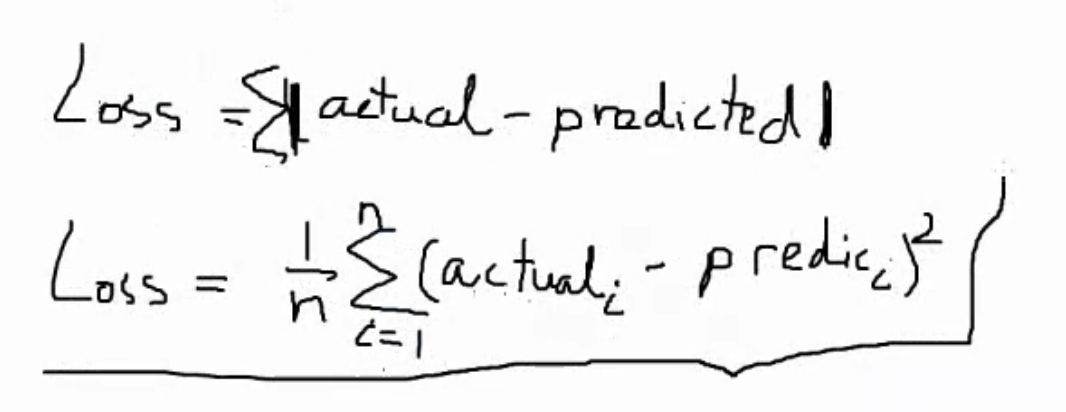 Loss = Σ|actual - predicted|
Loss = 1/n Σ_{i=1}^{n} (actual_i - predic_i)²